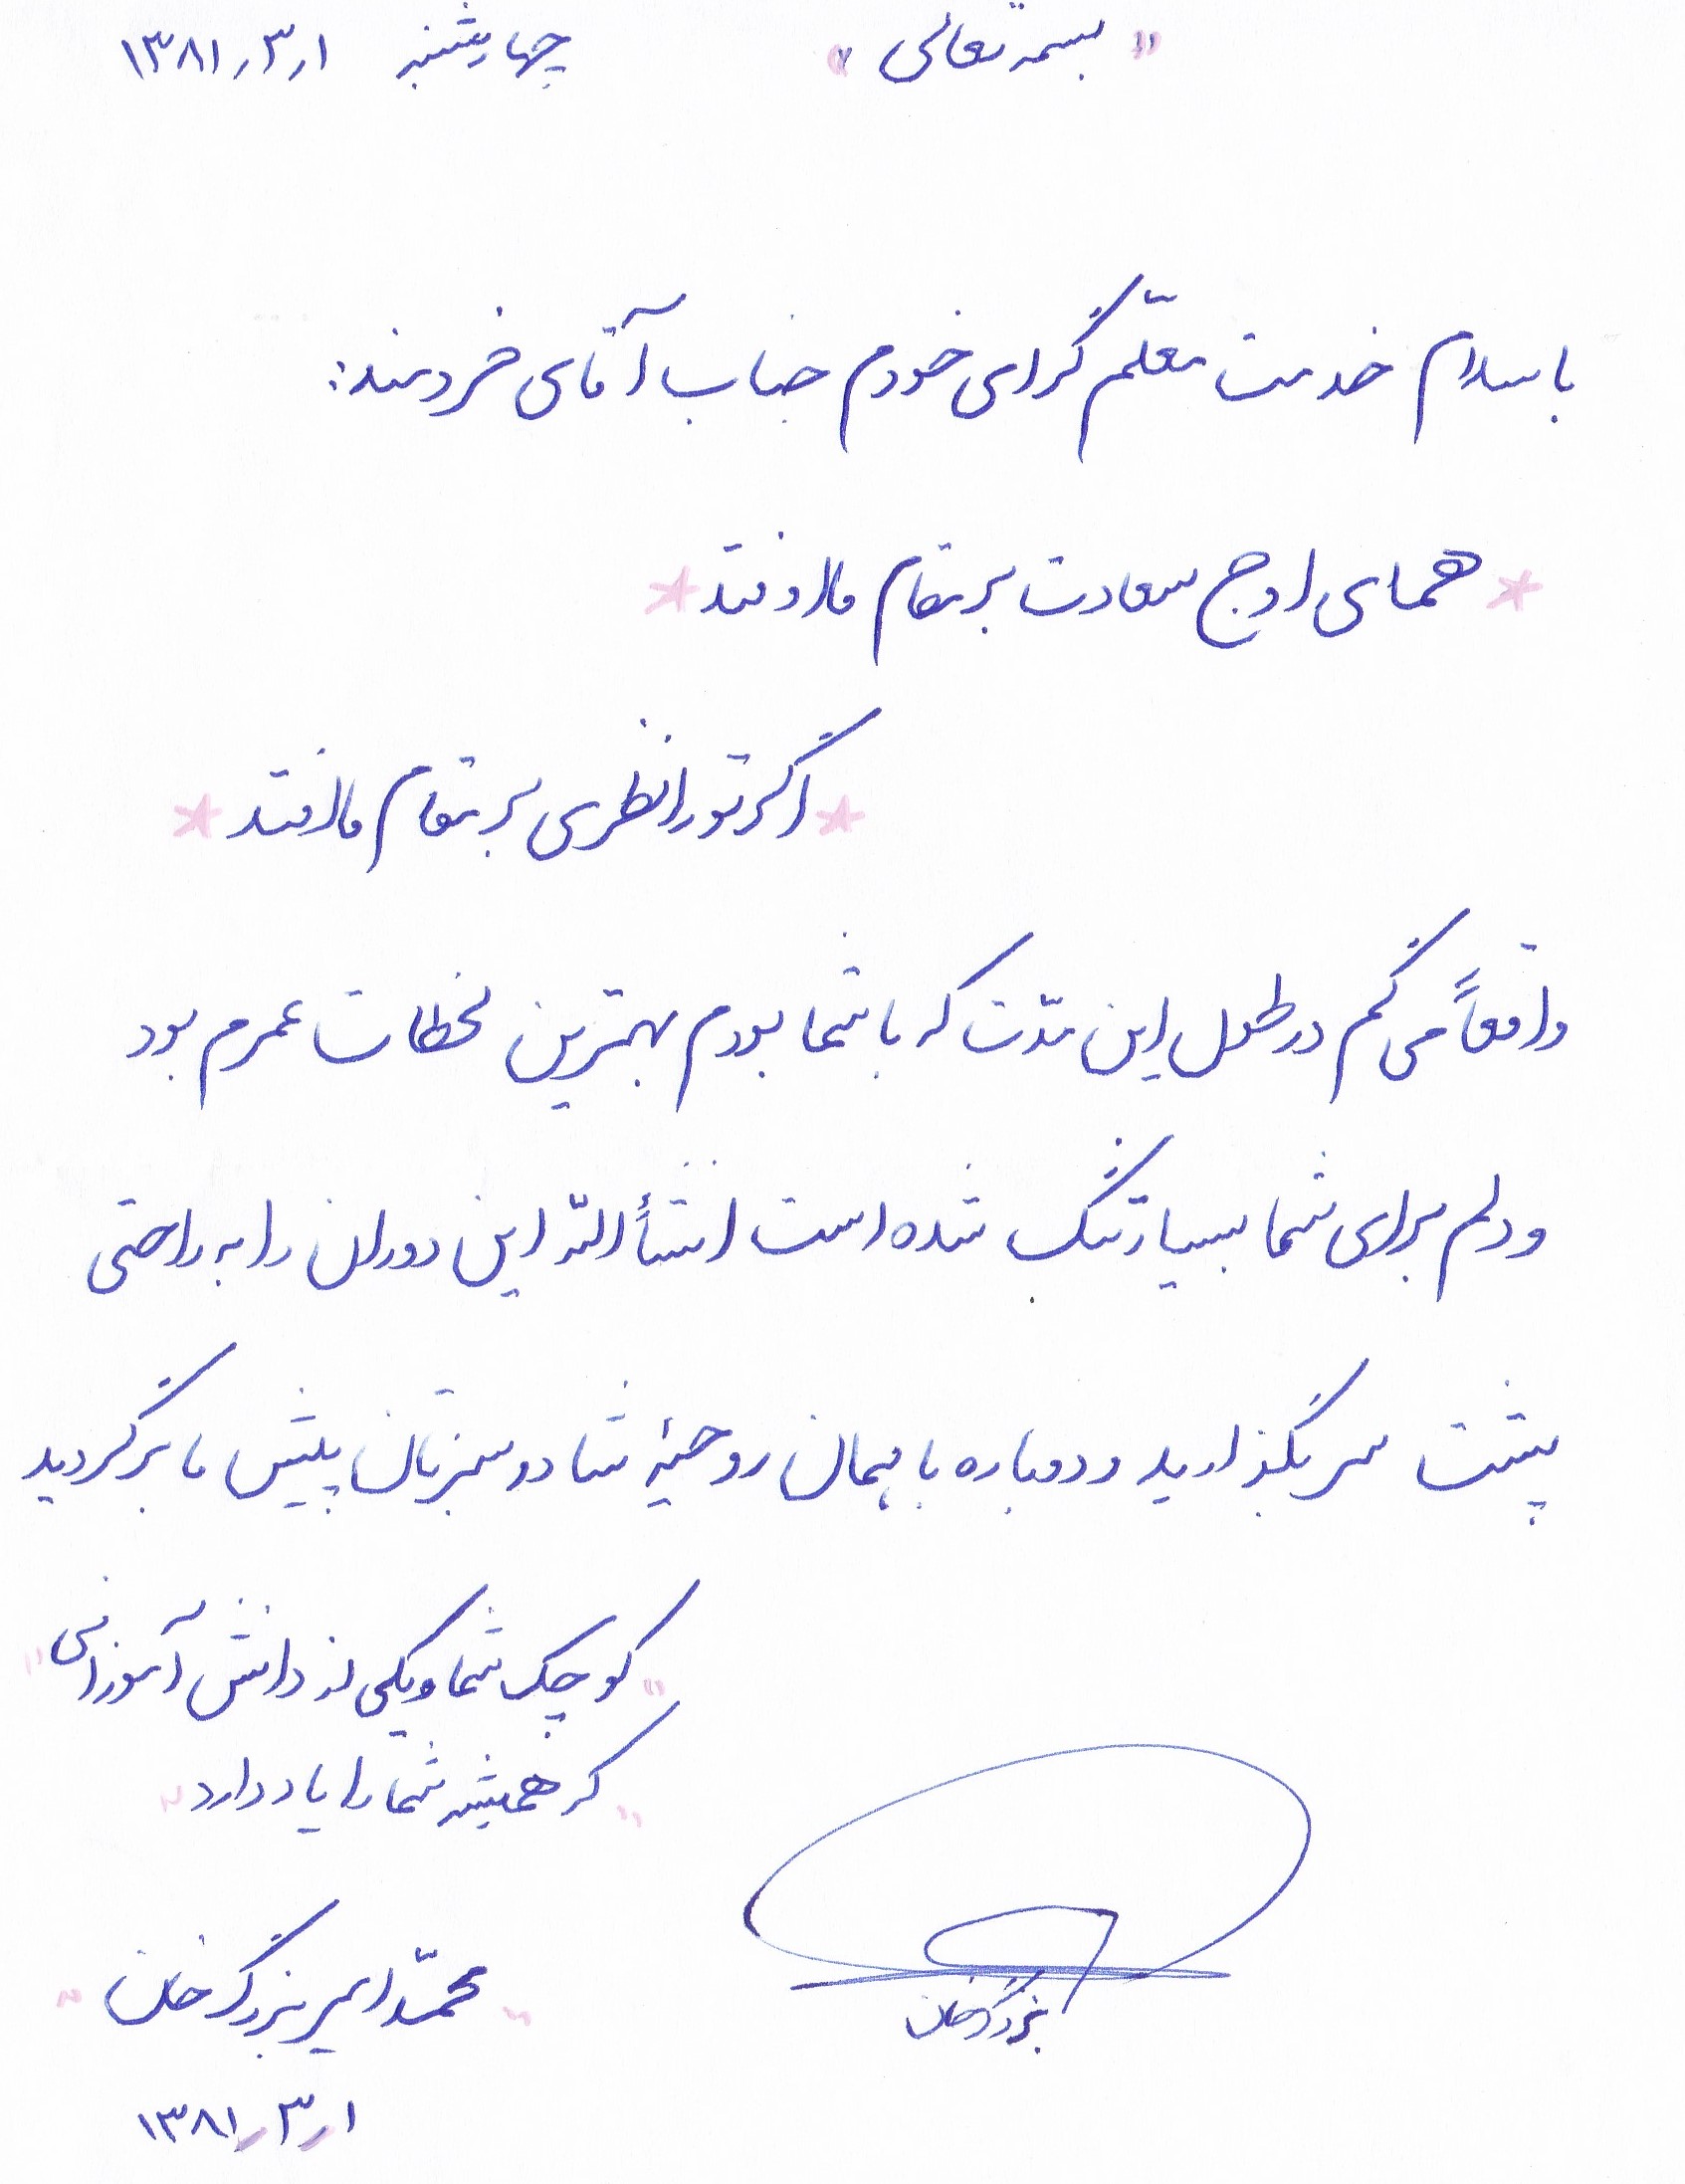 "بسمه تعالی" چهارشنبه ۱٫۳٫۱۳۸۱
با سلام خدمت معلّم گرای خودم جناب آقای خردمند:
* همای اوج سعادت بر مقام ما افتد *
* اگر تو را نظری بر مقام ما افتد *
واقعاً می گم در طول این مدّت که با شما بودم بهترین لحظات عمرم بود
و دلم برای شما بسیار تنگ شده است انشأالله این دوران را به راحتی
پشت سر بگذارید و دوباره با همان روحیۀ شاد و سبزتان پیش ما برگردید
"کوچک شما و یکی از دانش آموزانی"
"که همیشه شما را یاد دارد"
"محمّد امیر بزرگ خان"
بزرگ خان
۱٫۳٫۱۳۸۱